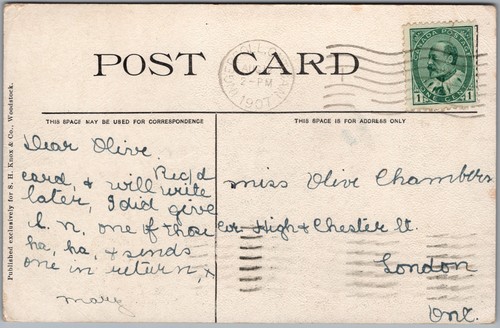 POST CARD
INGERSOLL, ONT.
2-PM
1907
CANADA POSTAGE
1 1
ONE CENT
THIS SPACE MAY BE USED FOR CORRESPONDENCE
THIS SPACE IS FOR ADDRESS ONLY
Published exclusively for S. H. Knox & Co., Woodstock.
Dear Olive.
Rec'd
card, & will write
later, I did give
L. N. one of those
ha, ha, & sends
one in return, x
Mary
Miss Olive Chambers
Cor High & Chester St.
London
Ont.